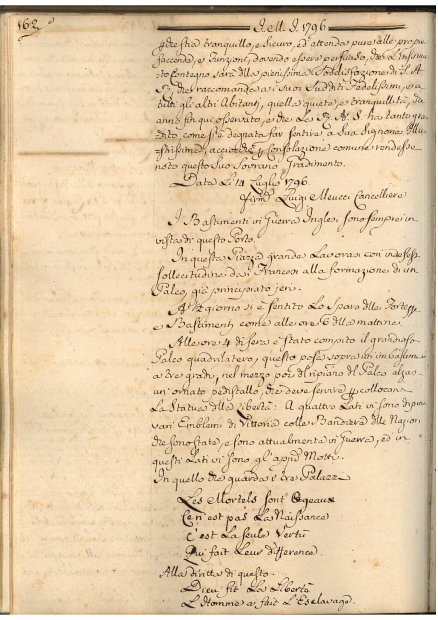 162
J. M. J. 1796
pre stia tranquillo, e sicuro, ed attenda pure alle proprie
faccende, e Funzioni, dovendo essere persuaso, che l'istesso
contegno sarà della pienissima Soddisfazione di S. A.
R. che raccomanda a i suoi Sudditi Fedelissimi, e a
tutti gli altri Abitanti, quella quiete, e tranquillità, che
anno fin qui osservato, e che La R. A. S. ha tanto gra
dito come s'è degnata far sentire a Sua Signoria Illu
strissima, acciocchè p consolazione comune rendesse
noto questo suo Sovrano Gradimento.
Data Li 14 Luglio 1796.
Firm. Luigi Meucci Cancelliere
I Bastimenti di Guerra Inglesi sono sempre in
vista di questo Porto.
In questa Piazza grande Lavorasi con indefessa
sollecitudine da i Francesi alla formazione di un
Palco, già principiato jeri.
A ½ giorno si è sentito Lo Sparo delle Fortezze
e Bastimenti come alle ore 6 della mattina.
Alle ore 4 di sera è stato compito il grandioso
Palco quadrilatero, questo posa sopra un imbasam
a tre gradi, nel mezzo poi del ripiano del Palco alzasi
un'ornato piedistallo, che deve servire p collocare
La Statua della Libertà: A quattro Lati vi sono dipin
vari Emblemi di Vittoria colle Bandiere delle Nazioni
che sono state, e sono attualmente in Guerra, ed in
questi Lati vi sono gl'appiè Motti.
In quello che guarda i tre Palazzi
Les Mortels sont egeaux
Ce n'est pas La Naissance
C'est La seule Vertù
Qui fait Leur difference.
Alla diritta di questo.
Dieu fit La Liberté
L'Homme a fait L'Esclavage.